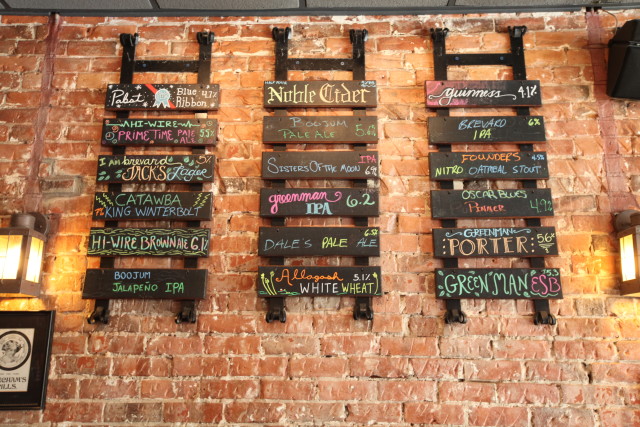 Pabst Blue Ribbon 4.7%
HI-WIRE
PRIME TIME PALE ALE
JACK'S Lager 5%
CATAWBA
KING WINTERBOLT
HI-WIRE BROWN ALE 6.1%
BOOJUM
JALAPEÑO IPA
Noble Cider
BOOJUM
PALE ALE 5.4%
SISTERS OF THE MOON IPA
greenman IPA 6.2
DALE'S PALE ALE
Allagash 5.1%
WHITE WHEAT
guinness 4.1%
BREVARD 6%
IPA
FOUNDER'S
NITRO OATMEAL STOUT
OSCAR BLUES
4.9%
GREENMAN
PORTER
GREEN MAN ESB